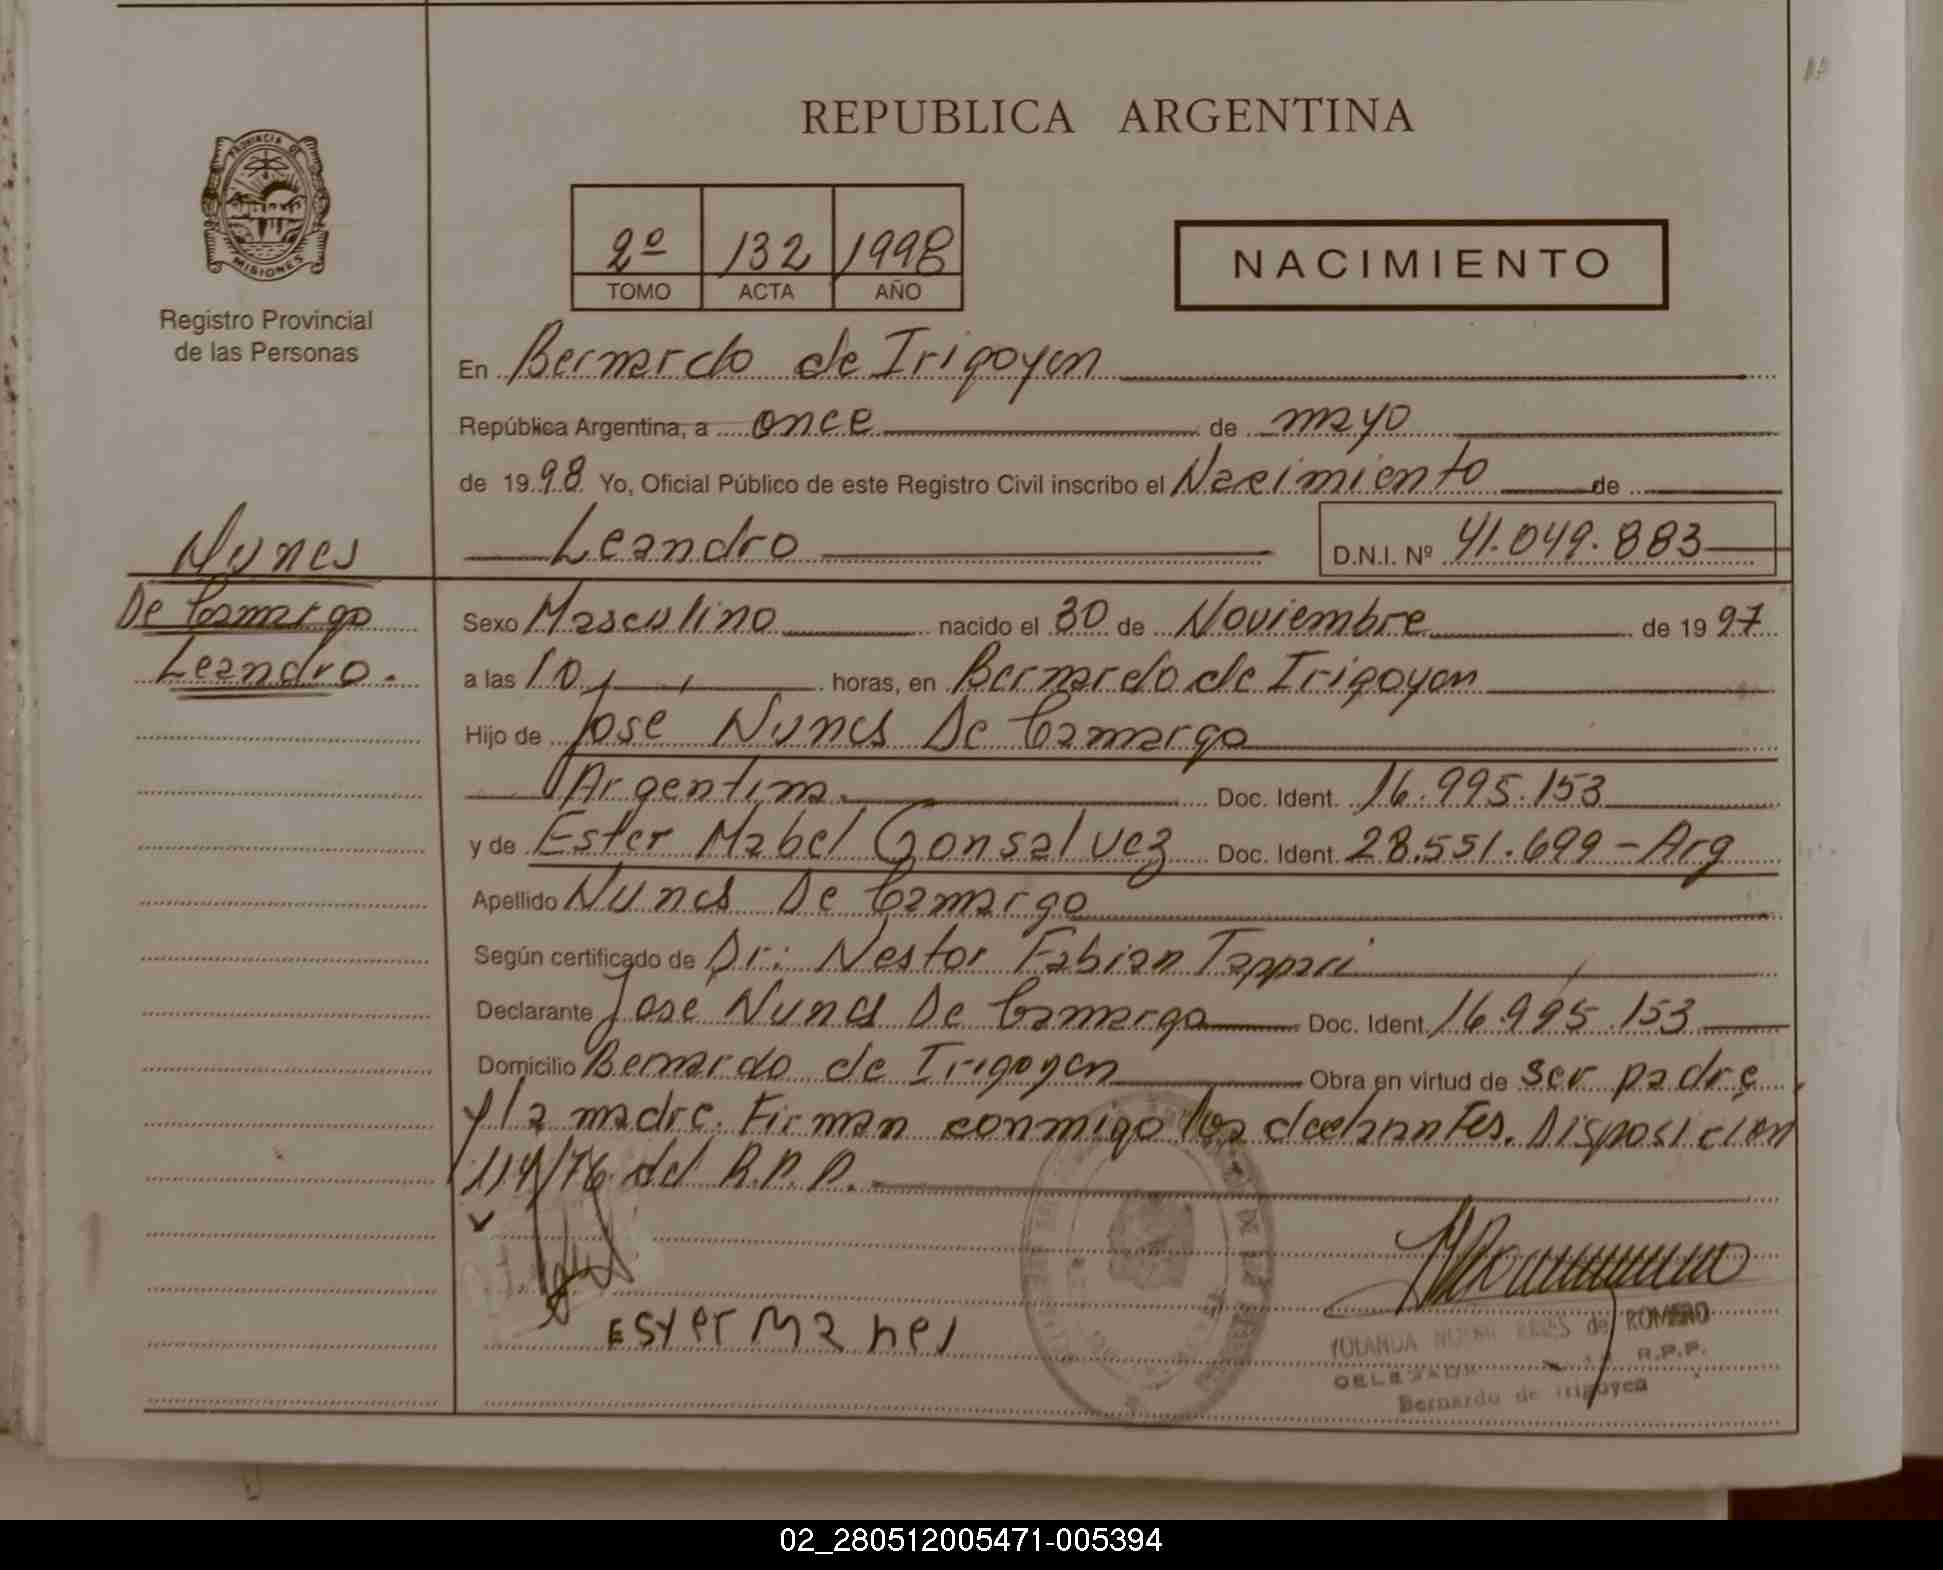 REPUBLICA ARGENTINA
PROVINCIA DE
MISIONES
Registro Provincial
de las Personas
2º 132 1998
TOMO ACTA AÑO
NACIMIENTO
En Bernardo de Irigoyen
República Argentina, a once de mayo
de 1998 Yo, Oficial Público de este Registro Civil inscribo el Nacimiento de
Leandro D.N.I. Nº 41.049.883
Nunes
De Camargo
Leandro.
Sexo Masculino nacido el 30 de Noviembre de 1997
a las 10 horas, en Bernardo de Irigoyen
Hijo de Jose Nunes De Camargo
Argentina. Doc. Ident. 16.995.153
y de Ester Mabel Gonsalvez Doc. Ident. 28.551.699 - Arg
Apellido Nunes De Camargo
Según certificado de Dr: Nestor Fabian Tappari
Declarante Jose Nunes De Camargo Doc. Ident. 16.995.153
Domicilio Bernardo de Irigoyen Obra en virtud de ser padre
y la madre. Firman conmigo los declarantes. Disposicion
114/76 del R.P.P.
Ester Mabel
YOLANDA de ROMERO
DELEGADA R.P.P.
Bernardo de Irigoyen
02_280512005471-005394